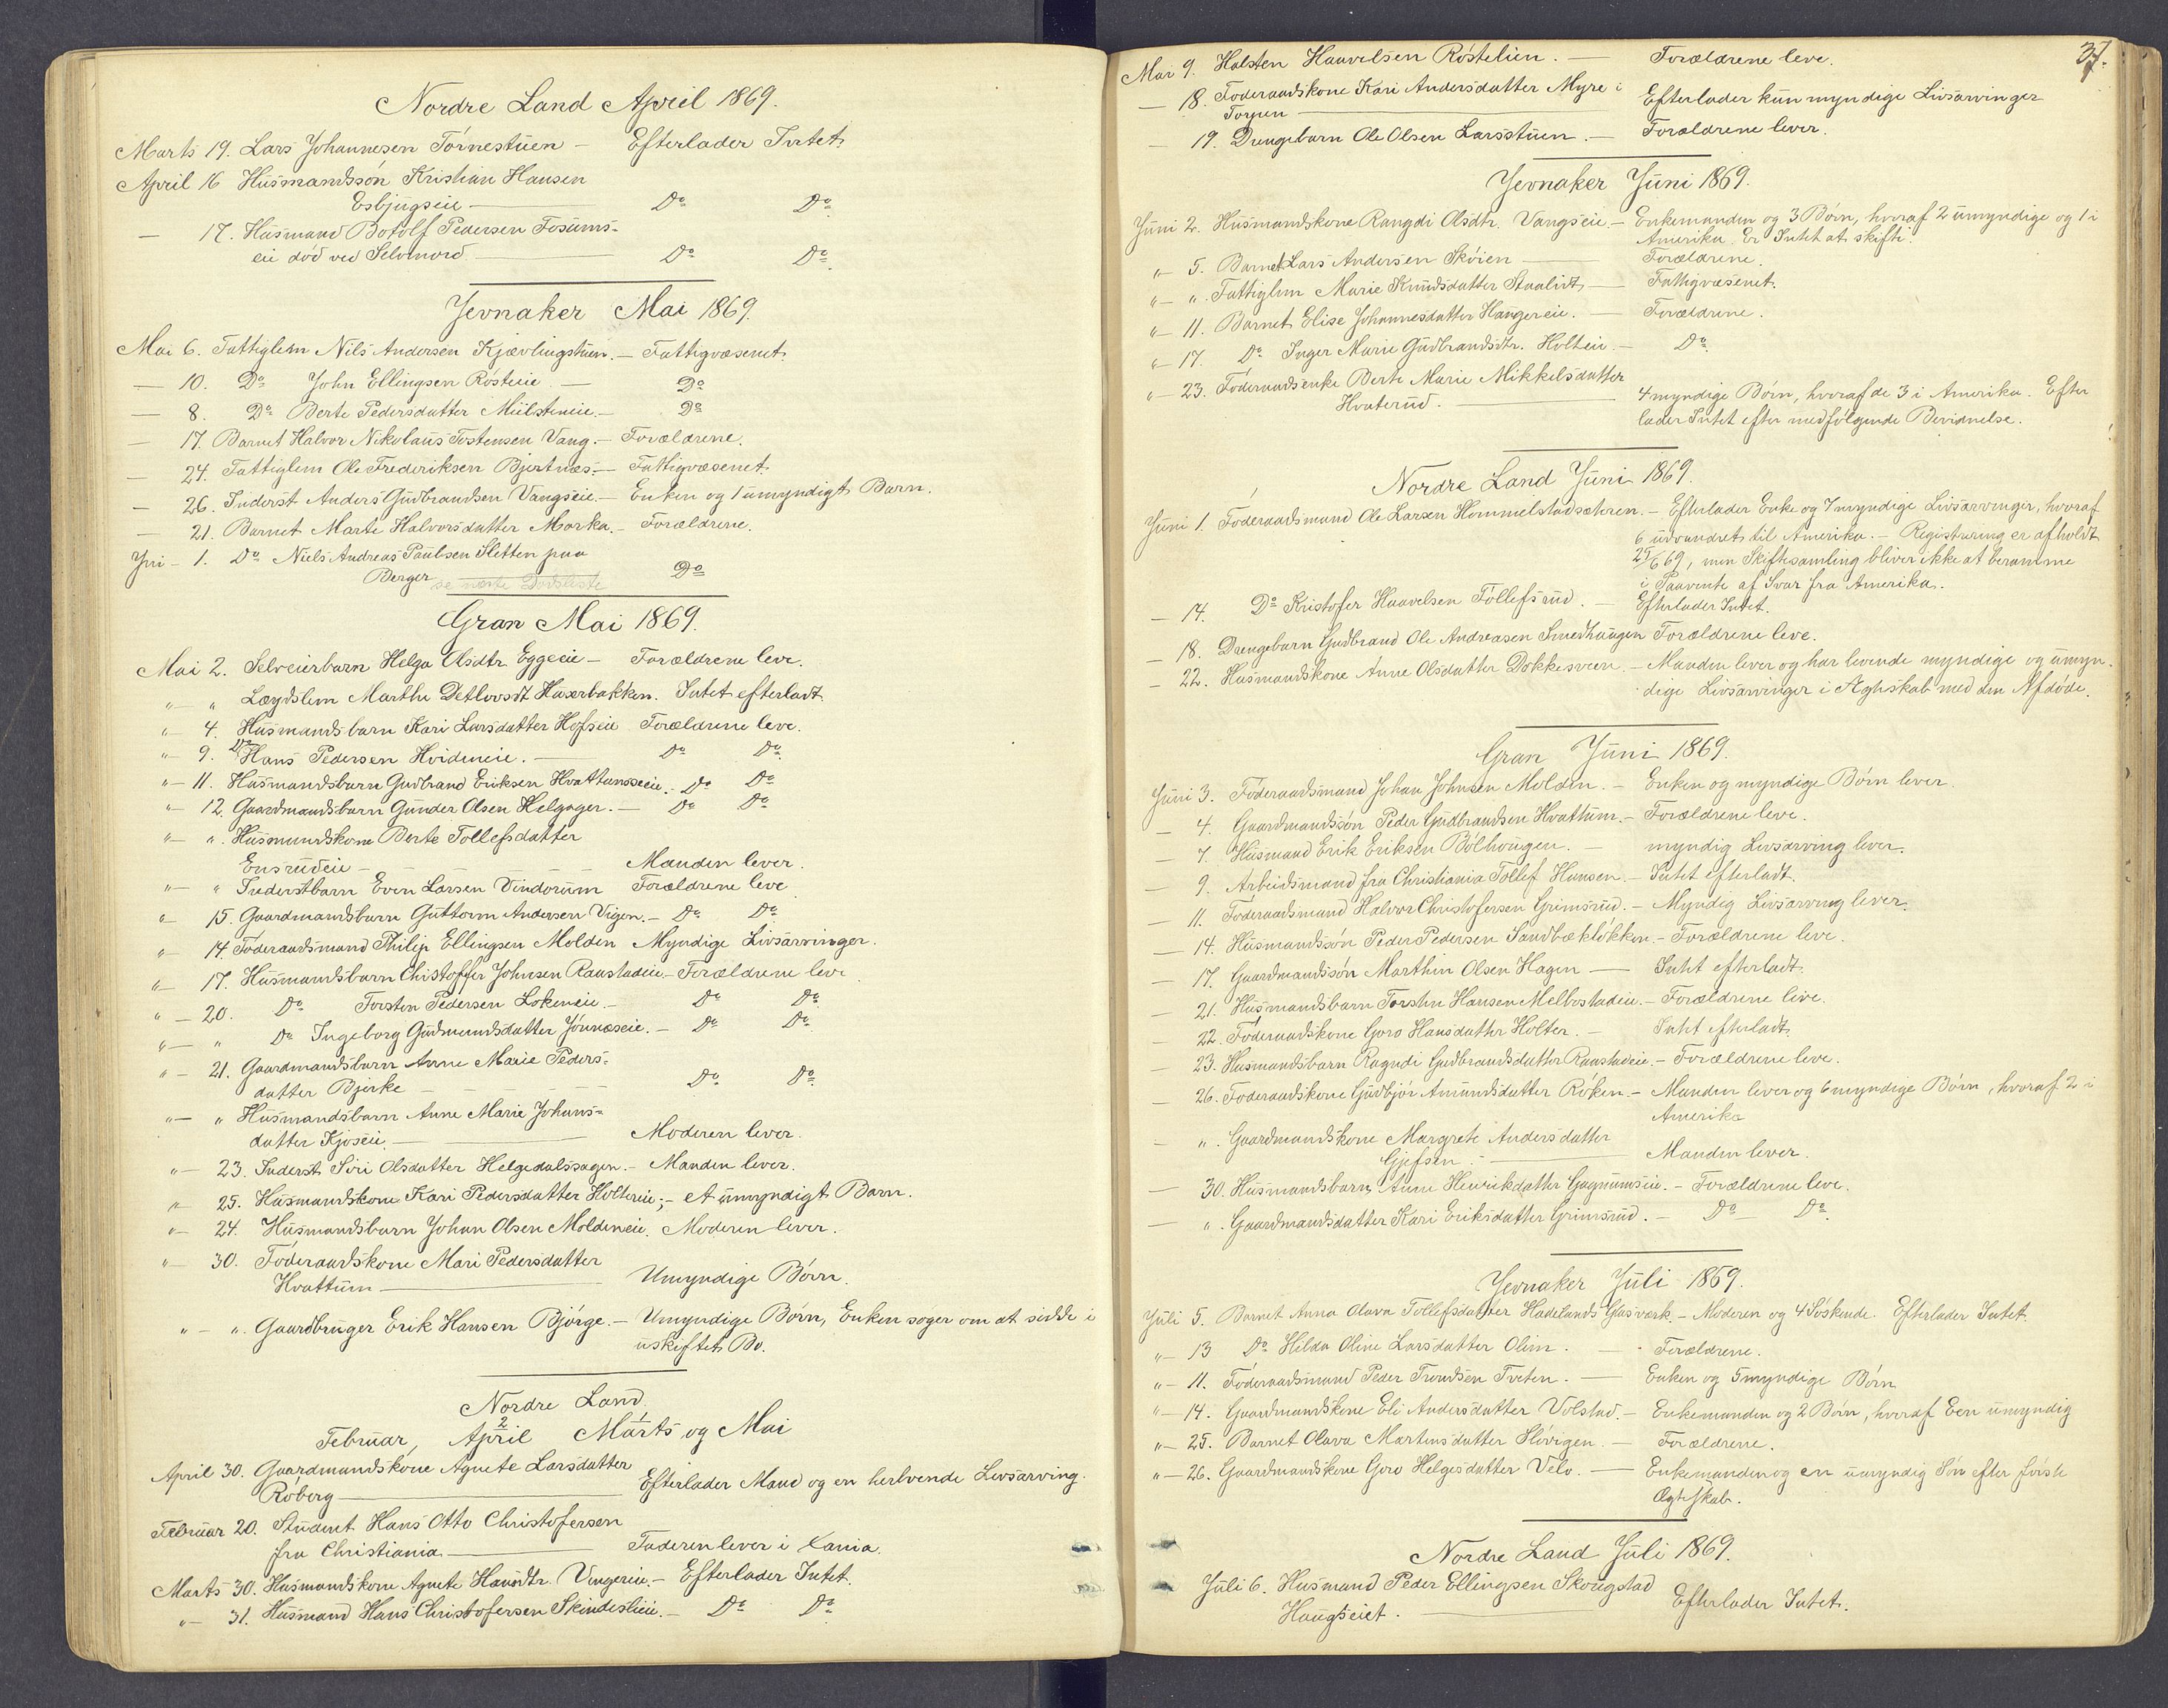 Nordre Land April 1869.
Marts 19. Lars Johannesen Tørnestuen – Efterlader Intet
April 16 Husmandssøn Kristian Hansen
Esbjugseie — Do Do
— 17. Husmand Botolf Pedersen Fosums-
eie død ved Selvmord — Do Do
Jevnaker Mai 1869.
Mai 6. Fattiglem Nils Andersen Kjævlingstuen. – Fattigvæsenet
— 10. Do John Ellingsen Røsteie. — Do
— 8. Do Berte Pedersdatter Miilsteneie. – Do
— 17. Barnet Halvor Nikolaus Tostensen Vang. – Forældrene.
— 24. Fattiglem Ole Frederiksen Bjertnæs. – Fattigvæsenet.
— 26. Inderst Anders Gudbrandsen Vangseie. – Enken og 1 umyndigt Barn.
— 21. Barnet Marte Halvorsdatter Morka. – Forældrene.
Juni – 1. Do Niels Andreas Paulsen Sletten paa
Berger se næste Dødsliste Do
Gran Mai 1869.
Mai 2. Selveierbarn Helga Olsdtr. Eggeeie – Forældrene leve.
" " Lægdslem Marthe Detlovsdt Haserbakken. Intet efterladt.
"– 4. Husmandsbarn Kari Larsdatter Hofseie Forældrene leve.
"– 9. Do Hans Pedersen Hvideneie. — Do Do
"– 11. Husmandsbarn Gudbrand Eriksen Hvattumseie. Do Do
"– 12. Gaardmandsbarn Gunder Olsen Helgager. – Do Do
"– ". Husmandskone Berte Tollefsdatter
Ensrudeie – — Manden lever.
"– " Inderstbarn Even Larsen Vindorum Forældrene leve
"– 15. Gaardmandsbarn Guttorm Andersen Vigen. – Do Do
"– 14. Føderaadsmand Philip Ellingsen Molden Myndige Livsarvinger.
"– 17. Husmandsbarn Christoffer Johnsen Raastadeie – Forældrene leve
"– 20. Do Torsten Pedersen Lokeneie. – Do Do
"– " Do Ingeborg Gudmundsdatter Jónnæseie. – Do Do
"– 21. Gaardmandsbarn Anne Marie Peders-
datter Bjerke — Do Do
"– " Husmandsbarn Anne Marie Johans-
datter Kjoseie — Moderen lever.
"– 23. Inderst Siri Olsdatter Helgedalssagen. – Manden lever.
"– 25. Husmandskone Kari Pedersdatter Holteeie; – et umyndigt Barn.
"– 24. Husmandsbarn Johan Olsen Moldeneie. Moderen lever.
"– 30. Føderaadskone Mari Pedersdatter
Hvattum — Umyndige Børn.
"– ". Gaardbruger Erik Hansen Bjørge. – Umyndige Børn, Enken søger om at sidde i
uskiftet Bo.
Nordre Land
Februar, 2 April 1 Marts og Mai
April 30. Gaardmandskone Agnete Larsdatter
Roberg — Efterlader Mand og en herlvende Livsarving.
Februar 20. Student Hans Otto Christofersen
fra Christiania — Faderen lever i Xania.
Marts 30. Husmandskone Agnete Hansdtr. Vingereie. – Efterlader Intet.
"– 31. Husmand Hans Christofersen Skindeslieie. – Do Do
37.
Mai 9. Halsten Haavelsen Røstelien. — Forældrene leve.
— 18. Føderaadskone Kari Andersdatter Myre i
Torpen — Efterlader kun myndige Livsarvinger
— 19. Drengebarn Ole Olsen Larsstuen. – Forældrene lever.
Jevnaker Juni 1869.
Juni 2. Husmandskone Rangdi Olsdtr. Vangseie – Enkemanden og 3 Børn, hvoraf 2 umyndige og 1 i
Amerika. Er Intet at skifte.
"– 5. Barnet Lars Andersen Skøien — Forældrene.
"– ". Fattiglem Marie Knudsdatter Staalidt, — Fattigvæsenet.
"– 11. Barnet Elise Johannesdatter Haugereie. — Forældrene.
"– 17. Do Inger Marie Gudbrandsdtr. Holteie. – Do
"– 23. Føderaadsenke Berte Marie Mikkelsdatter
Hvaterud. — 4 myndige Børn, hvoraf de 3 i Amerika. Efter
lader Intet efter medfølgende Bevidnelse.
Nordre Land Juni 1869.
Juni 1. Føderaadsmand Ole Larsen Hommelstadsæteren. – Efterlader Enke og 7 myndige Livsarvinger, hvoraf
6 udvandret til Amerika. – Registrering er afholdt
25/6 69, men Skiftesamling bliver ikke at beramme
i Paavente af Svar fra Amerika.
— 14. Do Kristofer Haavelsen Tollefsrud. – Efterlader Intet.
— 18. Drengebarn Gudbrand Ole Andreasen Smedhaugen Forældrene leve.
— 22. Husmandskone Anne Olsdatter Dokkesveen. – Manden lever og har levende myndige og umyn-
dige Livsarvinger i Ægteskab med den Afdøde.
Gran Juni 1869.
Juni 3. Føderaadsmand Johan Johnsen Molden. – Enken og myndige Børn lever.
— 4. Gaardmandssøn Peder Gudbrandsen Hvattum. – Forældrene leve.
— 7. Husmand Erik Eriksen Bólhougen. — myndig Livsarving lever.
— 9. Arbeidsmand fra Christiania Tollef Hansen. – Intet efterladt.
— 11. Føderaadsmand Halvor Christofersen Grimsrud. – Myndig Livsarving lever.
— 14. Husmandssøn Peder Pedersen Sandbækløkken. – Forældrene leve.
— 17. Gaardmandssøn Marthin Olsen Hagen — Intet efterladt.
— 21. Husmandsbarn Torsten Hansen Melbostadeie. – Forældrene leve.
— 22. Føderaadskone Goro Hansdatter Holter. – Intet efterladt.
— 23. Husmandsbarn Ragndi Gudbrandsdatter Raastadeie. – Forældrene leve.
— 26. Føderaadskone Gudbjór Amundsdatter Róken. – Manden lever og 6 myndige Børn, hvoraf 2 i
Amerika
— ". Gaardmandskone Margrete Andersdatter
Gjefsen. — Manden lever.
— 30. Husmandsbarn Anne Henrikdatter Gagnumseie. – Forældrene leve.
— ". Gaardmandsdatter Kari Eriksdatter Grimsrud. – Do – Do
Jevnaker Juli 1869.
Juli 5. Barnet Anna Olava Tollefsdatter Hadelands Glasværk. – Moderen og 4 Søskende. Efterlader Intet.
"– 13 Do Hilda Oline Larsdatter Olim. — Forældrene.
"– 11. Føderaadsmand Peder Trondsen Tveten. — Enken og 5 myndige Børn
"– 14. Gaardmandskone Eli Andersdatter Volstad. – Enkemanden og 2 Børn, hvoraf Een umyndig
"– 25. Barnet Olava Martinsdatter Høvigen. — Forældrene.
"– 26. Gaardmandskone Goro Helgesdatter Velo. — Enkemanden og en umyndig Søn efter første
Ægteskab.
Nordre Land Juli 1869.
Juli 6. Husmand Peder Ellingsen Skougstad
Haugseiet. — Efterlader Intet.